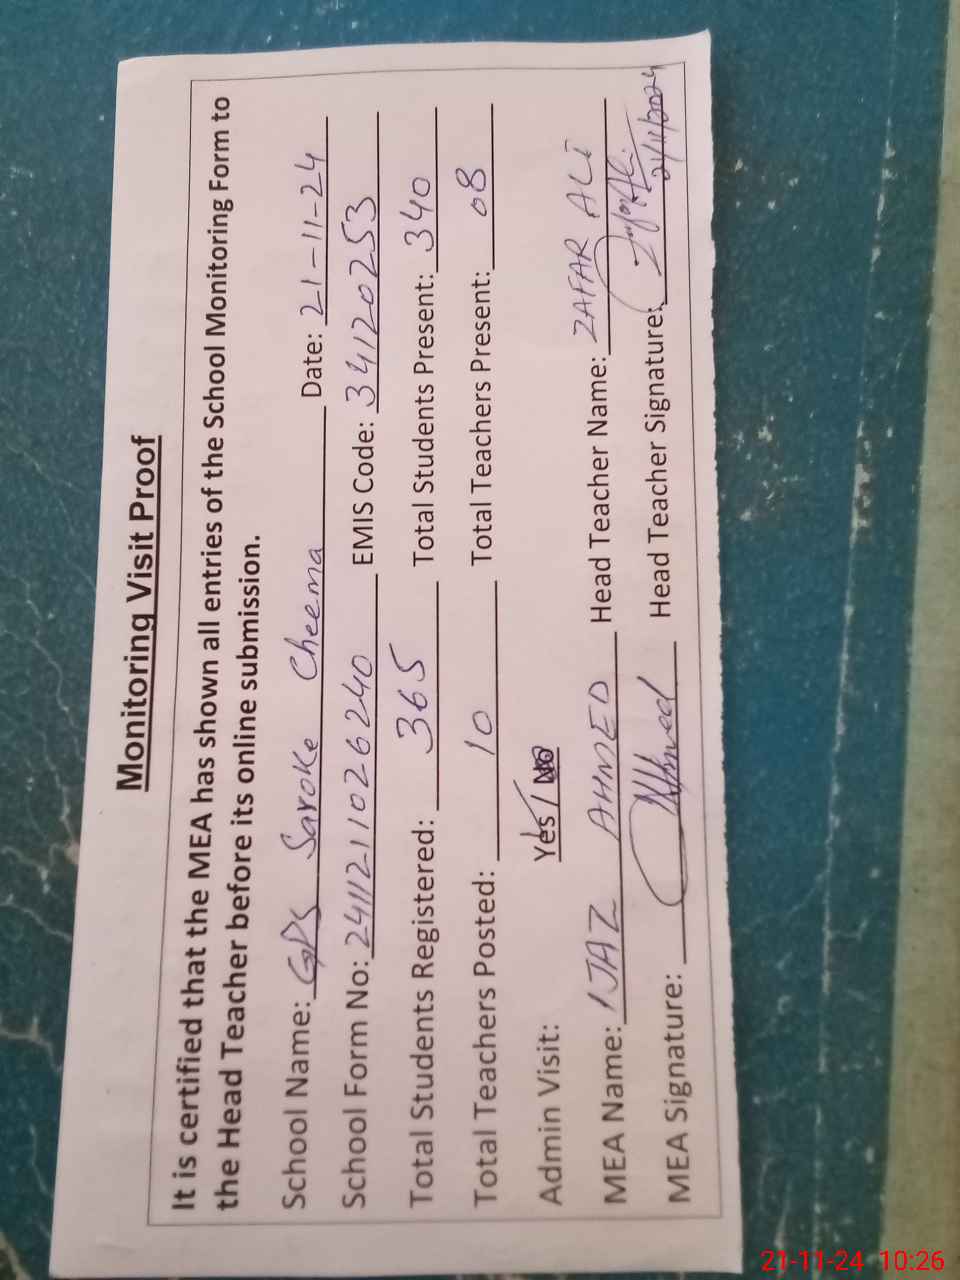 Monitoring Visit Proof
It is certified that the MEA has shown all entries of the School Monitoring Form to
the Head Teacher before its online submission.
School Name: GPS Saroke Cheema Date: 21-11-24
School Form No: 2411211026240 EMIS Code: 34120253
Total Students Registered: 365 Total Students Present: 340
Total Teachers Posted: 10 Total Teachers Present: 08
Admin Visit: Yes / No
MEA Name: IJAZ AHMED Head Teacher Name: ZAFAR ALI
MEA Signature: Ahmed Head Teacher Signature: 21/11/2024
21-11-24 10:26